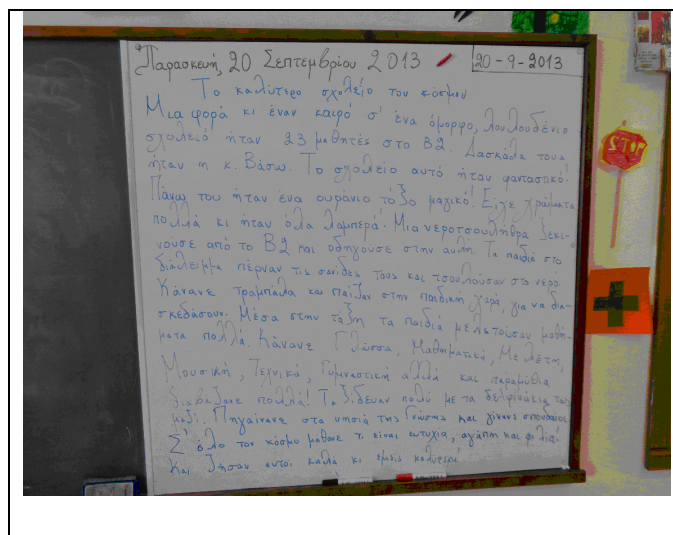 Παρασκευή, 20 Σεπτεμβρίου 2013
20-9-2013
Το καλύτερο σχολείο του κόσμου
Μια φορά κι έναν καιρό σ' ένα όμορφο, λουλουδένιο
σχολειό ήταν 23 μαθητές στο Β2. Δασκάλα τους
ήταν η κ. Βάσω. Το σχολείο αυτό ήταν φανταστικό!
Πάνω του ήταν ένα ουράνιο τόξο μαγικό! Είχε χρώματα
πολλά κι ήταν όλα λαμπερά! Μια νεροτσουλήθρα ξεκι-
νούσε από το Β2 και οδηγούσε στην αυλή. Τα παιδιά στο
διάλειμμα πέρναν τις σανίδες τους και τσουλούσαν στο νερό.
Κάνανε τραμπάλα και παίζαν στην παιδική χαρά, για να δια-
σκεδάσουν. Μέσα στην τάξη τα παιδιά μελετούσαν μαθή-
ματα πολλά. Κάνανε Γλώσσα, Μαθηματικά, Μελέτη,
Μουσική, Τεχνικά, Γυμναστική αλλά και παραμύθια
διαβάζανε πολλά! Ταξίδευαν πολύ με τα δελφινάκια τους
μαζί. Πηγαίνανε στα νησιά της Γνώσης και γίνανε σπουδαίοι
Σ' όλο τον κόσμο μάθανε τι είναι ευτυχία, αγάπη και φιλία!
Και ζήσαν αυτοί καλά κι εμείς καλύτερα!
STOP